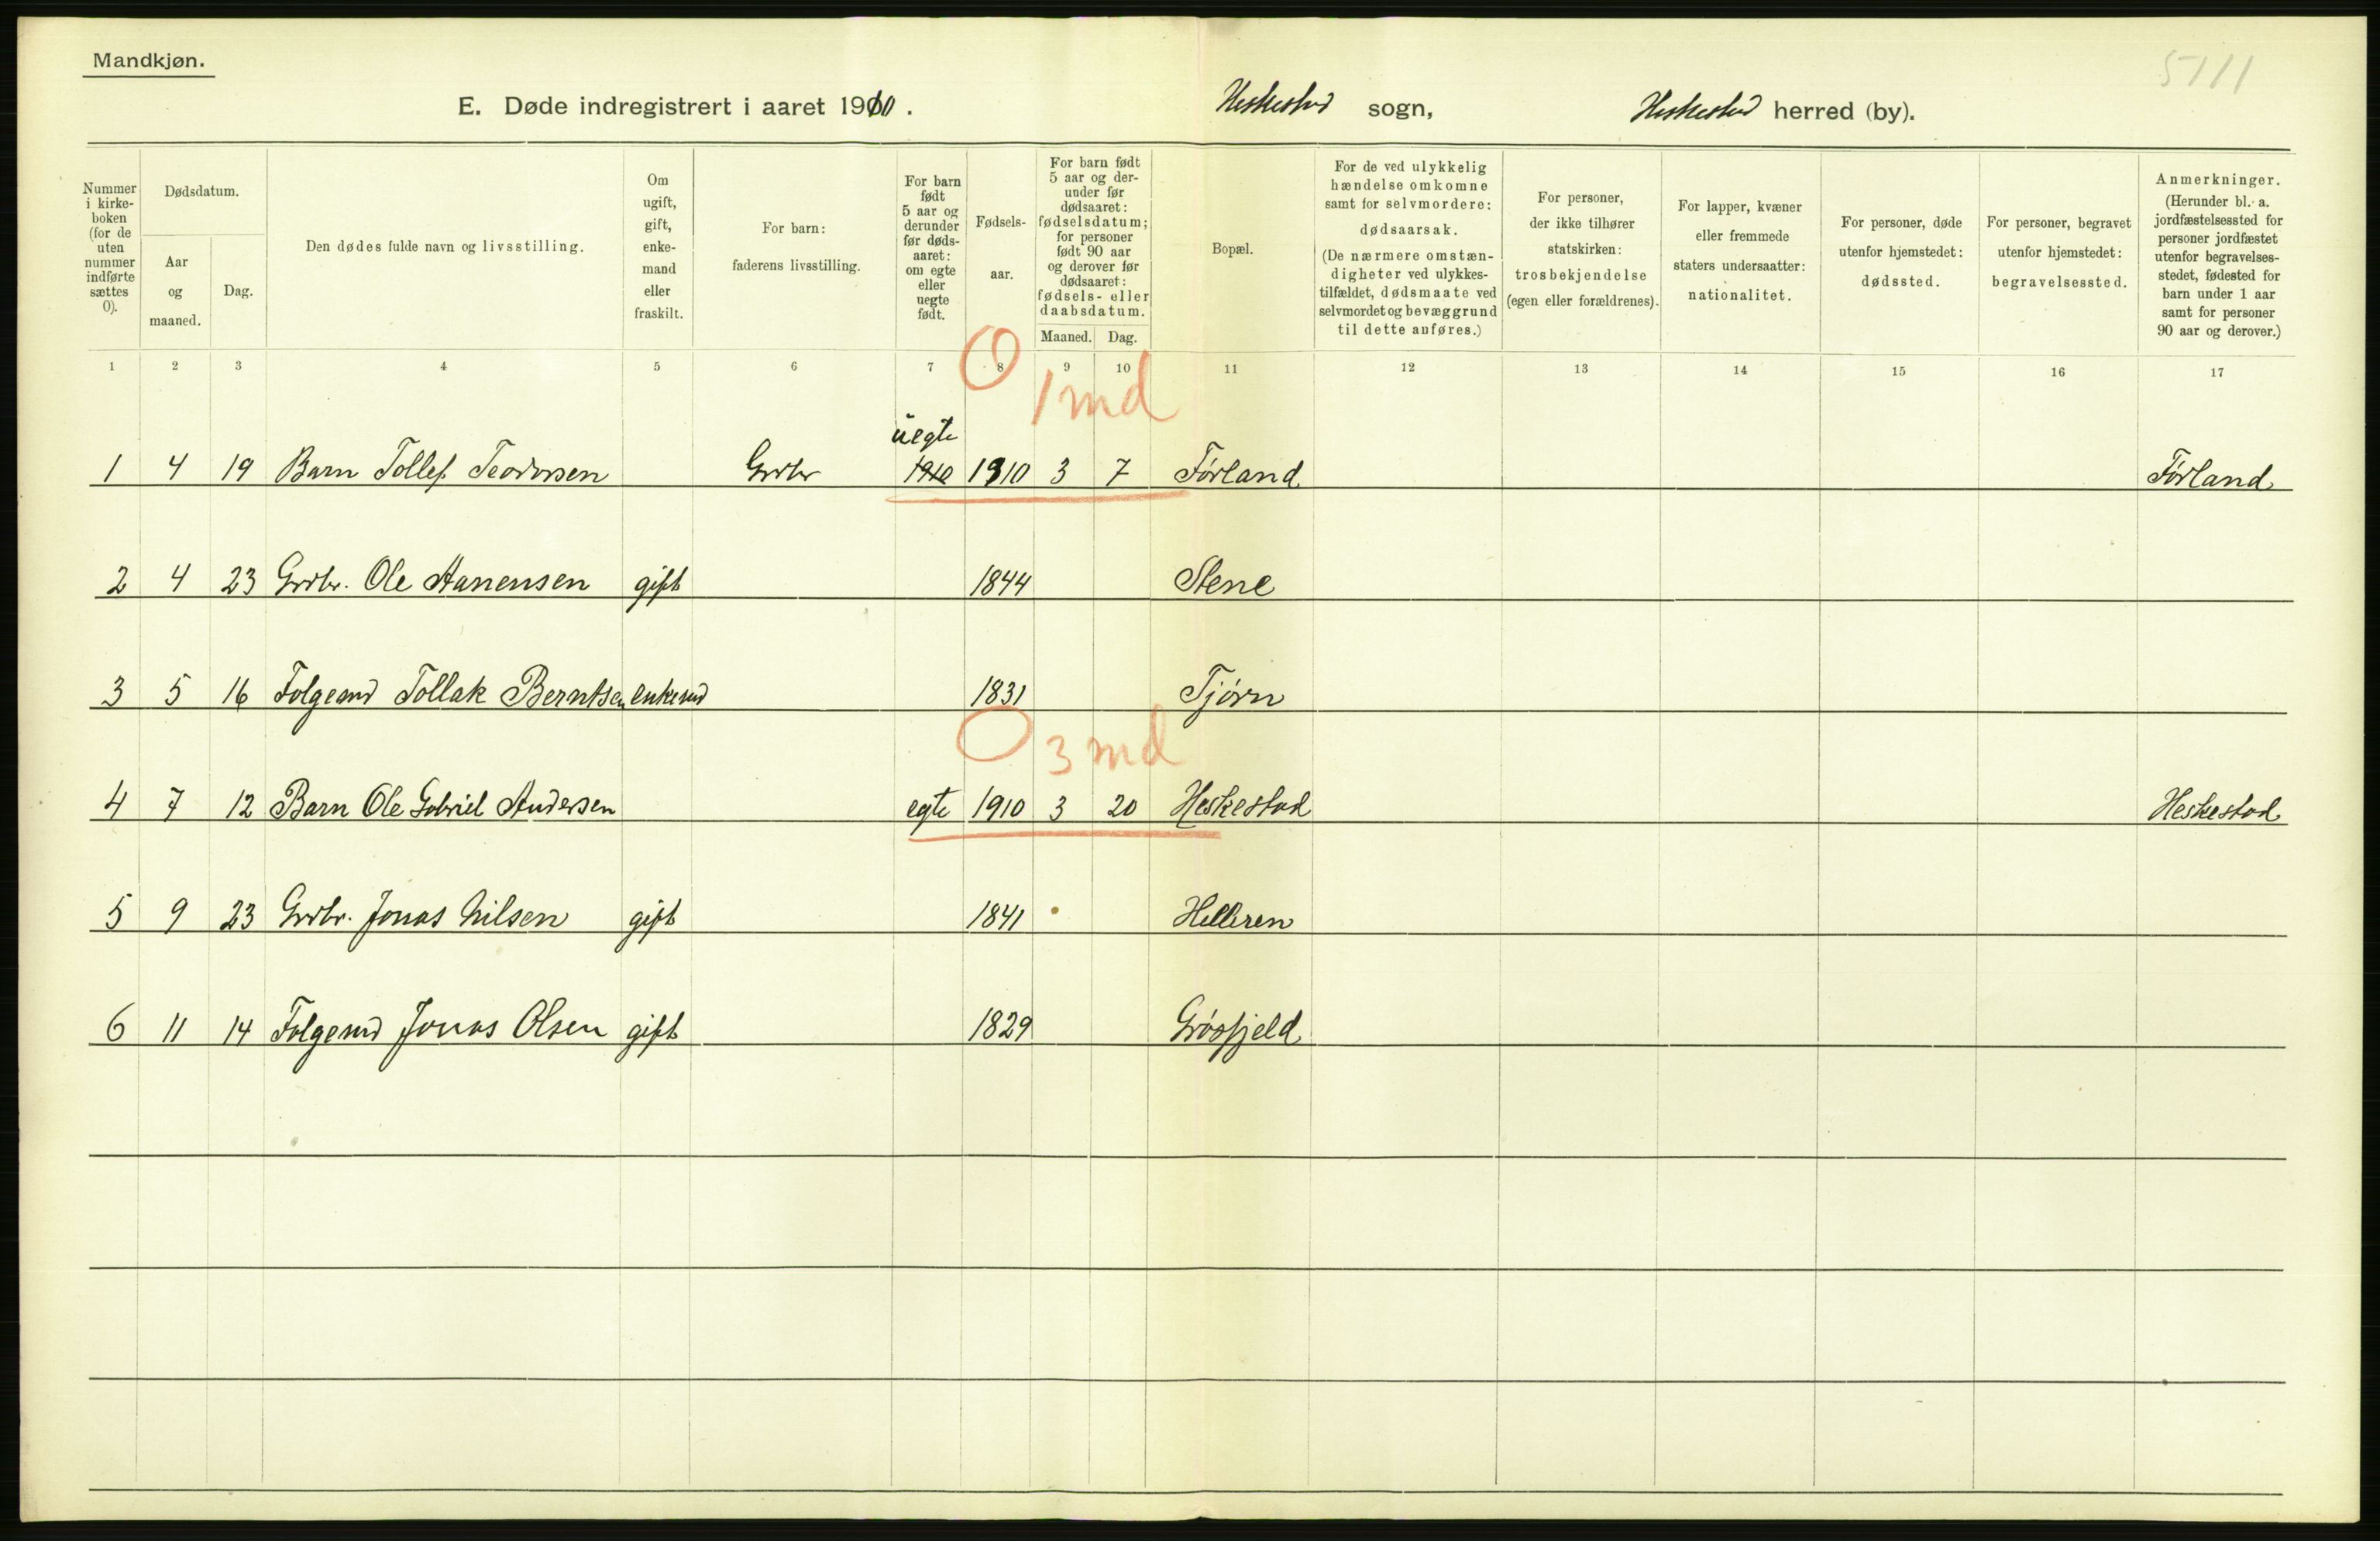 Mandkjøn.
5111
E. Døde indregistrert i aaret 1910.
Heskestad sogn,
Heskestad herred (by).
Nummer i kirke-boken (for de uten nummer indførte sættes 0).
Dødsdatum.
Aar og maaned.
Dag.
Den dødes fulde navn og livsstilling.
Om ugift, gift, enke-mand eller fraskilt.
For barn: faderens livsstilling.
For barn født 5 aar og derunder før døds-aaret: om egte eller uegte født.
Fødsels-aar.
For barn født 5 aar og der-under før dødsaaret: fødselsdatum; for personer født 90 aar og derover før dødsaaret: fødsels- eller daabsdatum.
Maaned. Dag.
Bopæl.
For de ved ulykkelig hændelse omkomne samt for selvmordere: dødsaarsak. (De nærmere omstæn-digheter ved ulykkes-tilfældet, dødsmaate ved selvmordet og bevæggrund til dette anføres.)
For personer, der ikke tilhører statskirken: trosbekjendelse (egen eller forældrenes).
For lapper, kvæner eller fremmede staters undersaatter: nationalitet.
For personer, døde utenfor hjemstedet: dødssted.
For personer, begravet utenfor hjemstedet: begravelsessted.
Anmerkninger. (Herunder bl. a. jordfæstelsessted for personer jordfæstet utenfor begravelses-stedet, fødested for barn under 1 aar samt for personer 90 aar og derover.)
1 2 3 4 5 6 7 8 9 10 11 12 13 14 15 16 17
0 1 md
uegte
1 4 19 Barn Tollef Teodorsen Grdbr 1910 1910 3 7 Førland Førland
2 4 23 Grdbr. Ole Aanensen gift 1844 Stene
3 5 16 Folgemd Tollak Berntsen enkemd 1831 Tjørn
0 3 md
4 7 12 Barn Ole Gabriel Andersen egte 1910 3 20 Heskestad Heskestad
5 9 23 Grdbr. Jonas Nilsen gift 1841 Helleren
6 11 14 Folgemd Jonas Olsen gift 1829 Grøsfjeld